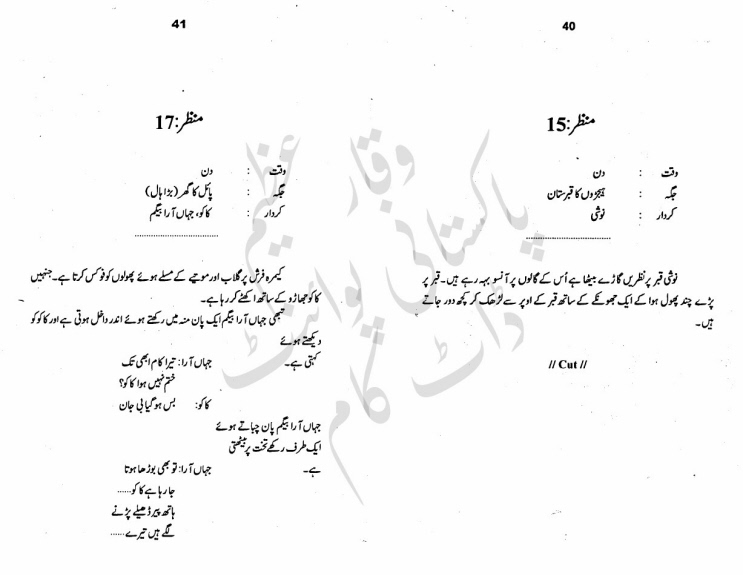 40
منظر:15
وقت : دن
جگہ : ہیجڑوں کا قبرستان
کردار : نوشی
نوشی قبر پر نظریں گاڑے بیٹھا ہے اُس کے گالوں پر آنسو بہہ رہے ہیں۔ قبر پر
پڑے چند پھول ہوا کے ایک جھونکے کے ساتھ قبر کے اوپر سے لڑھک کر کچھ دور جاتے
ہیں۔
// Cut //
41
منظر:17
وقت : دن
جگہ : پائل کا گھر (بڑا ہال)
کردار : کاکو، جہاں آرا بیگم
کیمرہ فرش پر گلاب اور موتیے کے مسلے ہوئے پھولوں کو فوکس کرتا ہے۔ جنہیں
کاکو جھاڑو کے ساتھ اکٹھے کر رہا ہے۔
تبھی جہاں آرا بیگم ایک پان منہ میں رکھتے ہوئے اندر داخل ہوتی ہے اور کاکو کو
دیکھتے ہوئے
کہتی ہے۔ جہاں آرا: تیرا کام ابھی تک
ختم نہیں ہوا کاکو؟
کاکو: بس ہو گیا بی جان
جہاں آرا بیگم پان چباتے ہوئے
ایک طرف رکھے تخت پر بیٹھتی
ہے۔ جہاں آرا: تو بھی بوڑھا ہوتا
جا رہا ہے کاکو......
ہاتھ پیر ڈھیلے پڑنے
لگے ہیں تیرے......
وقار عظیم
پاکستانی پوائنٹ
ڈاٹ کام